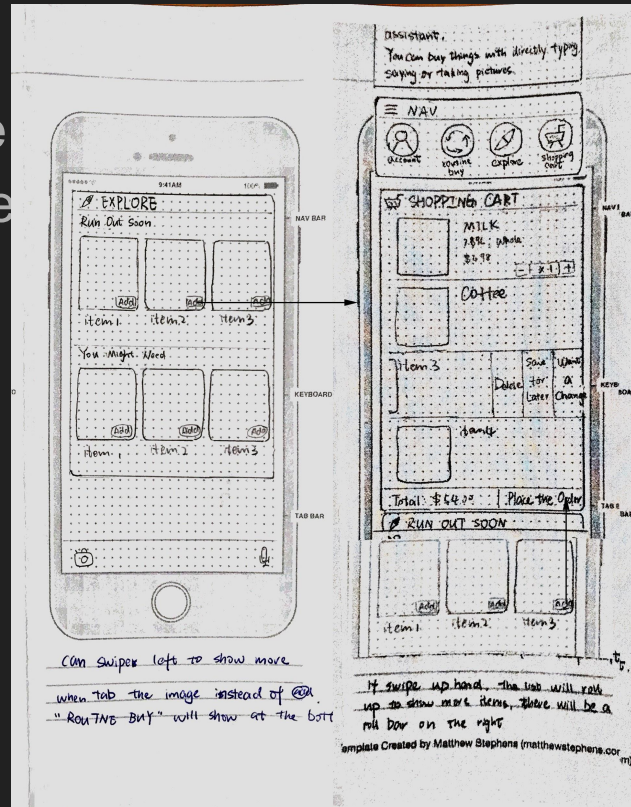 e
e
9:41AM
100%
EXPLORE
Run Out Soon
Add
Add
Add
item 1
item 2
item 3
You Might Need
Add
Add
Add
item 1
item 2
item 3
NAV BAR
KEYBOARD
TAB BAR
can swipe left to show more
when tab the image instead of Add.
"ROUTNE BUY" will show at the bott
assistant.
You can buy things with directly typing
saying or taking pictures.
NAV
account
routine
buy
explore
shopping
cart
SHOPPING CART
MILK
whole
- x1 +
Coffee
Item 3
Delete
Save
for
Later
Want
a
Change
item4
Total: $54.00
Place the Order
RUN OUT SOON
Add
Add
Add
item 1
item 2
item 3
NAV
BA
KEYB
BOA
TAB B
BA
If swipe up hard, the list will roll
up to show more items, there will be a
roll bar on the right
emplate Created by Matthew Stephens (matthewstephens.cor
m)